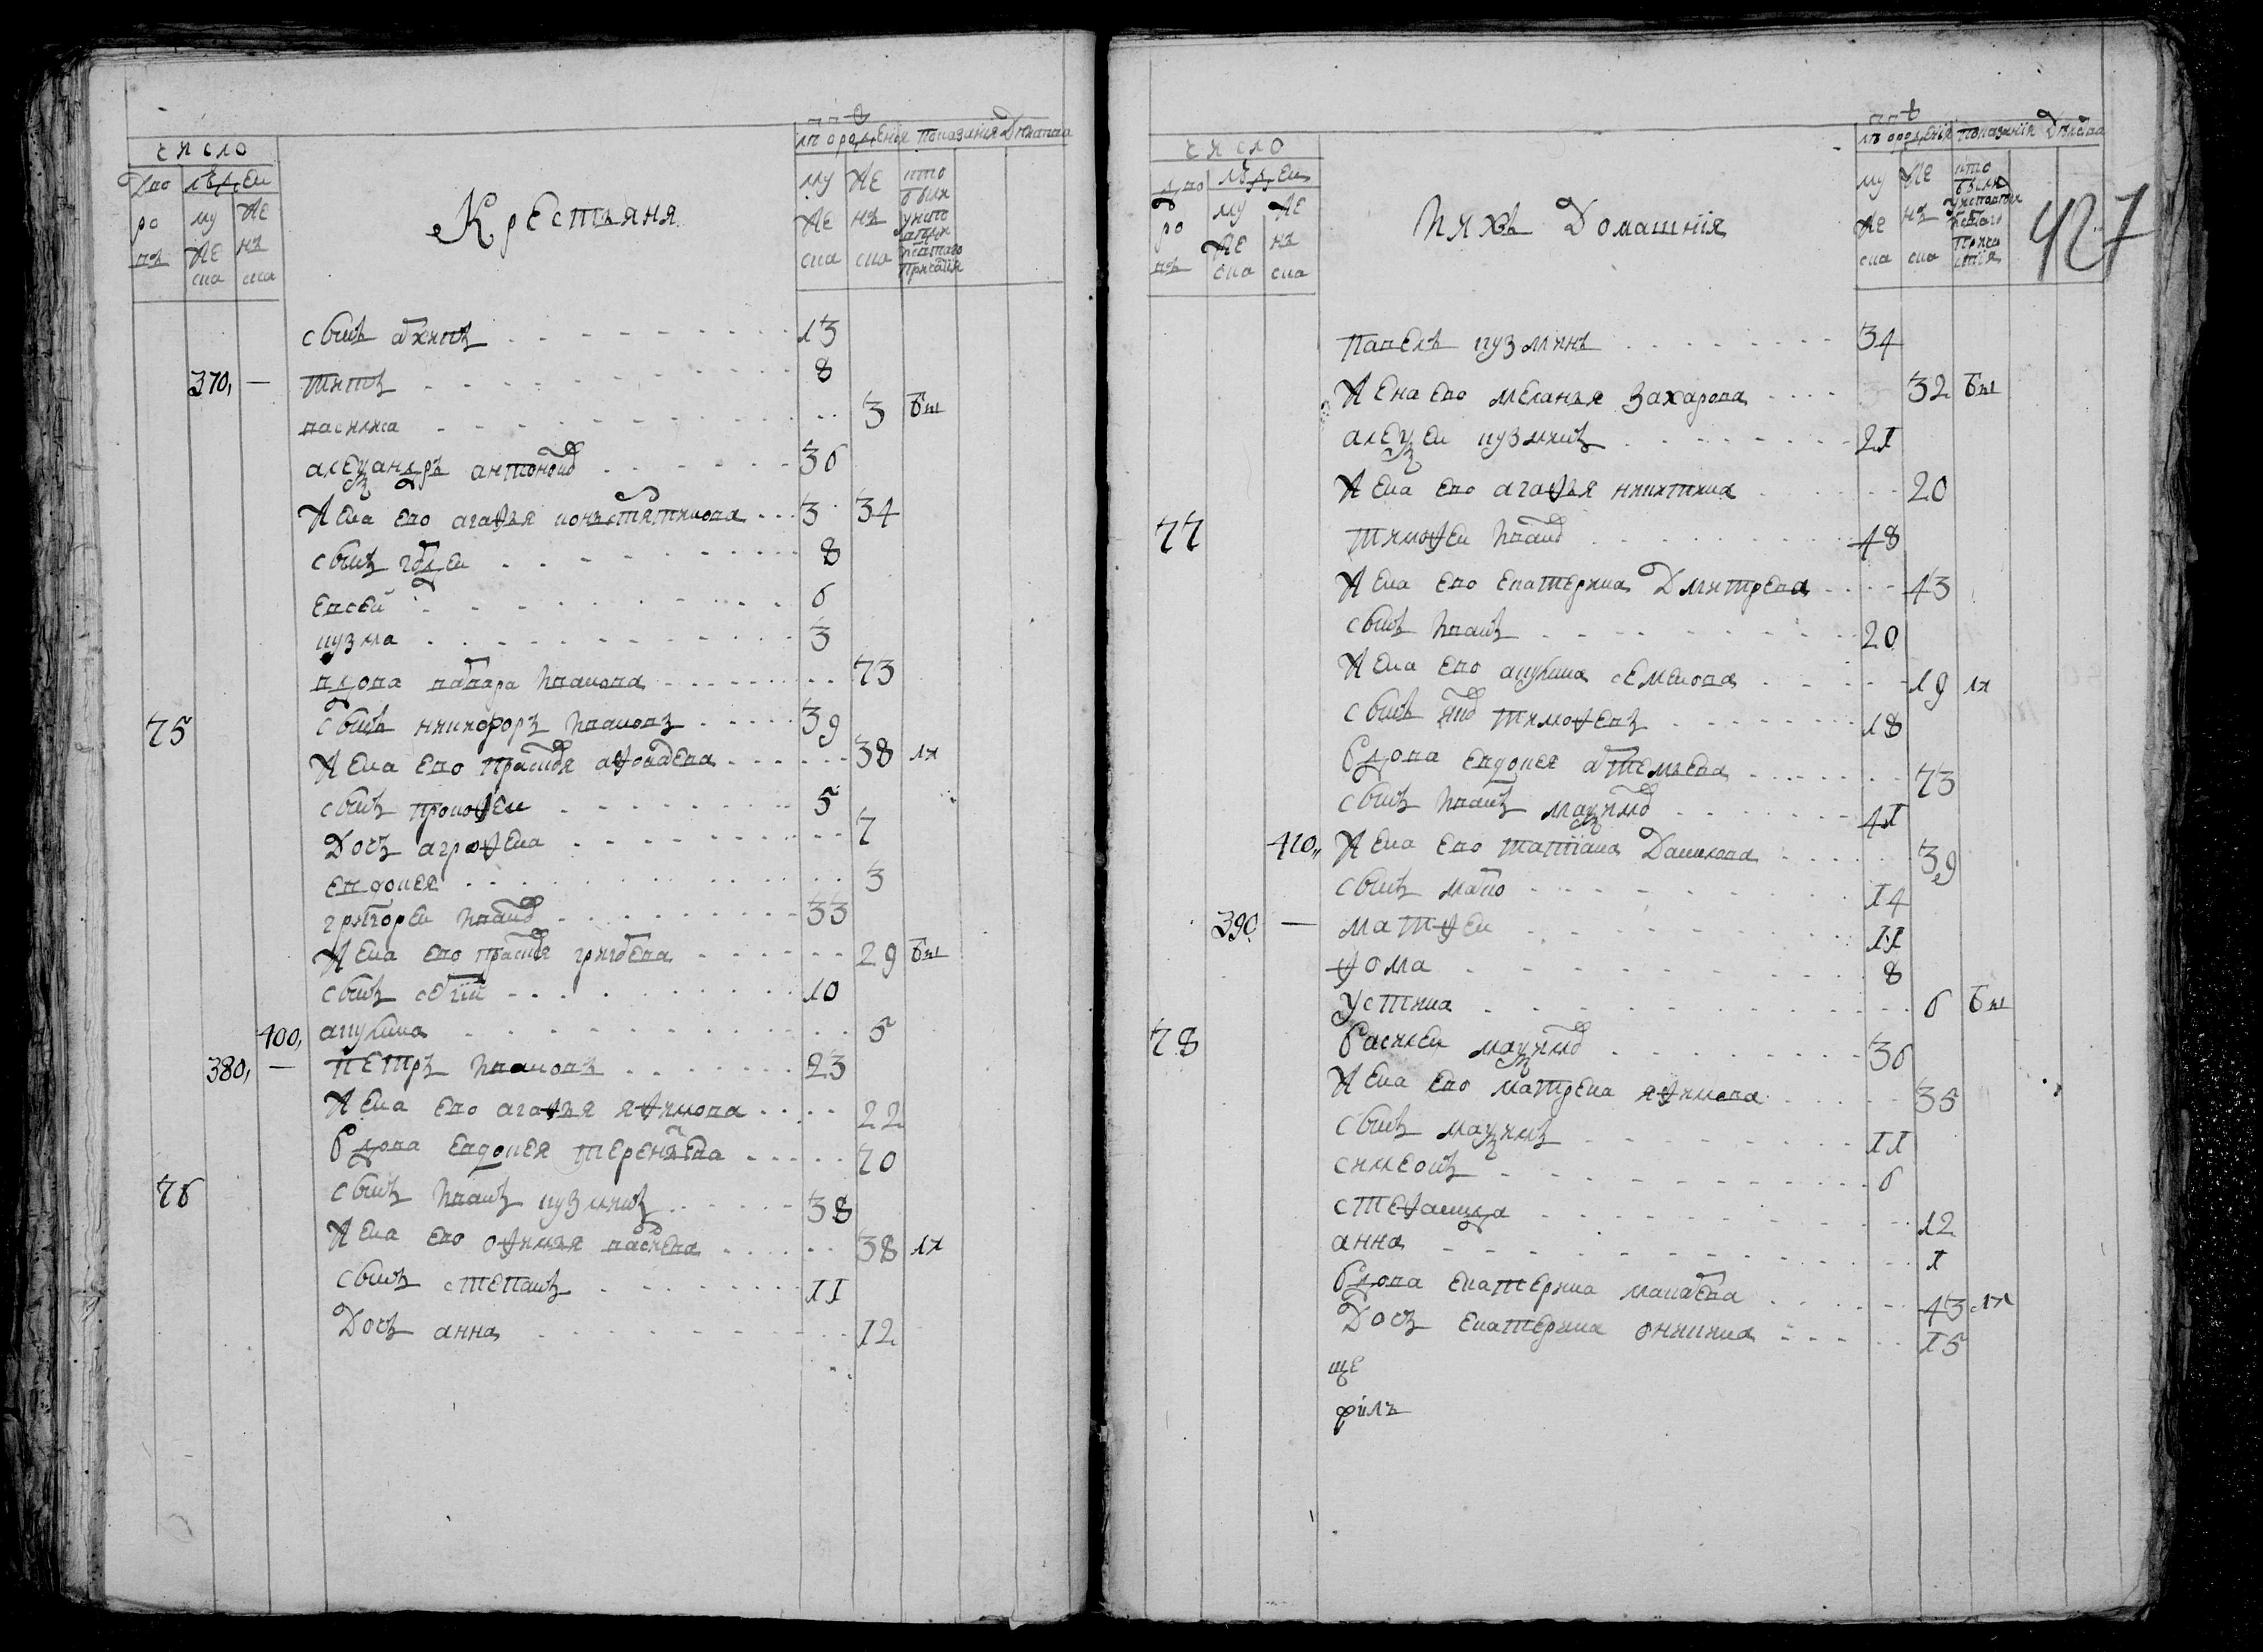 число
Дво ров
людеи
му же ска
же нъ ска
Крестьяня
лѣ о рожденія
показанія Дѣиства
му же ска
же нъ ска
кто былъ у исповѣди и святаго причастія
сынъ архипъ 13
370, — титъ 8
василиса 3 бы
алеѯандръ антоновъ 36
Жена ево агафья констянтинова 34
сынъ гордеи 8
евсеи 6
кузма 3
вдова варвара Иванова 73
75 сынъ никифоръ Ивановъ 39
Жена ево прасковя афонасева 38 ли
сынъ прокофеи 5
Дочь агрофена 7
евдокея 3
григореи Ивановъ 33
Жена ево прасковя григорева 29 бы
сынъ сергіи 10
400, акулина 5
380, — петръ Ивановъ 23
Жена ево агафья яфимова 22
Вдова евдокея терентьева 70
76 сынъ Иванъ кузминъ 38
Жена ево офимья васильева 38 ли
сынъ степанъ 11
Дочь анна 12
число
дво ров
людеи
му же ска
же нъ ска
Ихъ Домашнія
лѣ о рожденія
показанія Дѣиства
му же ска
же нъ ска
427
павелъ кузминъ 34
Жена ево меланья Захарова 32 бы
алеѯеи кузминъ 21
Жена ево агафья никитина 20
77 тимофеи Ивановъ 48
Жена ево екатерина Дмитрева 43
сынъ Иванъ 20
Жена ево акулина семенова 19 ли
сынъ яковъ тимофеевъ 18
Вдова евдокея артемьева 73
сынъ Иванъ маѯимовъ 41
410, Жена ево татіана Данилова 39
сынъ марко 14
390 — матфеи 11
фома 8
устина 6 бы
78 Василеи маѯимовъ 36
Жена ево матрена яфимова 35
сынъ маѯимъ 11
симеонъ 6
стефанида 12
анна 1
Вдова екатерина макарева 43 ли
Дочь екатерина оникина 15
ще
филъ